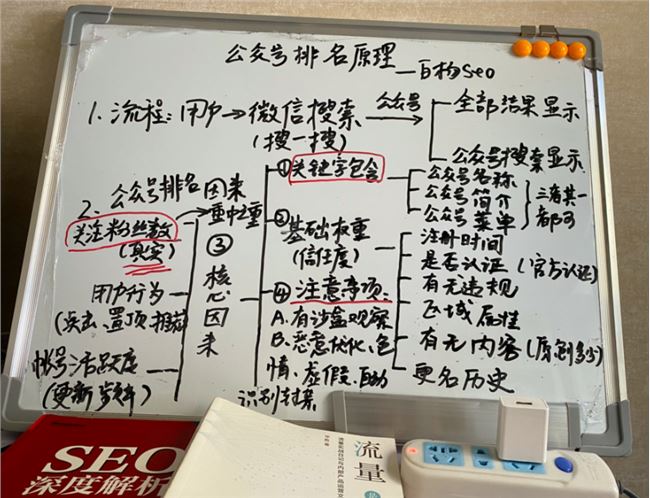 公众号排名原理—百构seo
1. 流程: 用户→微信搜索
(搜一搜)
公众号
全部结果显示
公众号搜索显示
2、公众号排名因素
①关键字包含
公众号名称
公众号简介
公众号菜单
三者其一
都可
②
基础权重
(信任度)
注册时间
是否认证(官方认证)
有无违规
区域属性
有无内容(原创多少)
更名历史
重中之重
③核心因素
关注粉丝数
(真实)
用户行为
(点击、置顶、推荐)
帐号活跃度
(更新频率)
④注意事项
A.有沙盒观察
B.恶意优化、色
情、虚假、自动
识别封禁
SEO
深度解析
流量